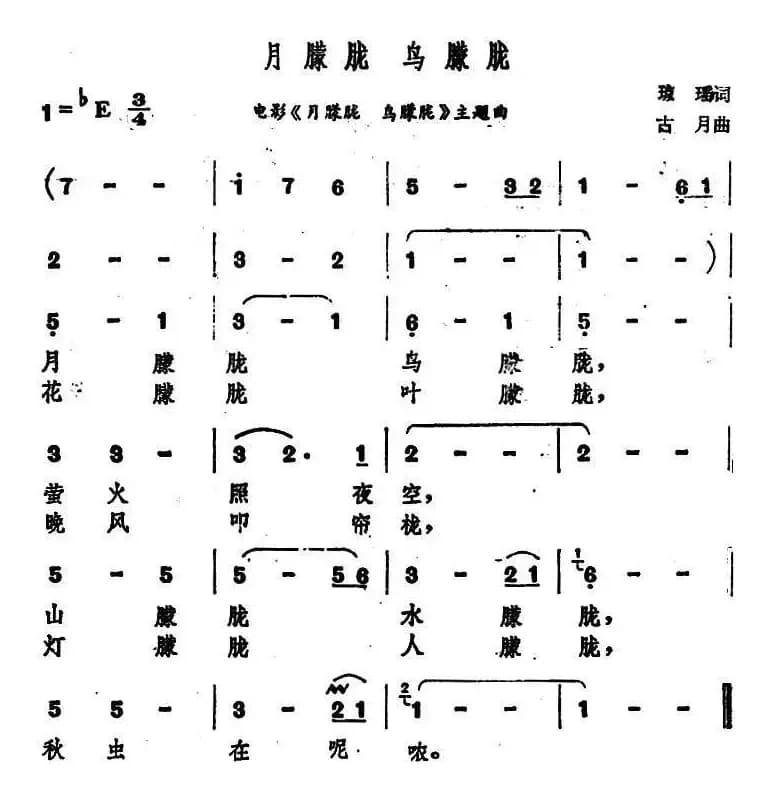 月朦胧 鸟朦胧
1=♭E 3/4 电影《月朦胧 鸟朦胧》主题曲 琼 瑶词
古 月曲
(7 - - | i 7 6 | 5 - 3 2 | 1 - 6 1 |
2 - - | 3 - 2 | 1 - - | 1 - - ) |
5 - 1 | 3 - 1 | 6 - 1 | 5 - - |
月 朦 胧 鸟 朦 胧,
花 朦 胧 叶 朦 胧,
3 3 - | 3 2. 1 | 2 - - | 2 - - |
萤 火 照 夜 空,
晚 风 叩 帘 栊,
5 - 5 | 5 - 5 6 | 3 - 2 1 | 1 6 - - |
山 朦 胧 水 朦 胧,
灯 朦 胧 人 朦 胧,
5 5 - | 3 - 2 1 | 2 1 - - | 1 - - ‖
秋 虫 在 呢 哝。